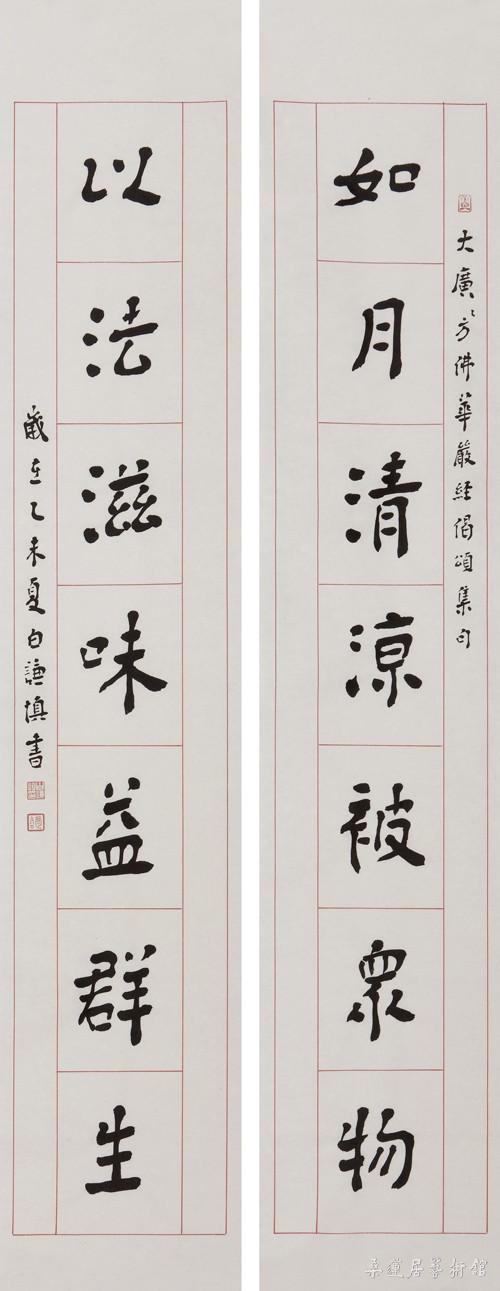 大廣方佛華嚴經偈頌集句
如月清涼被眾物
以法滋味益群生
歲在乙未夏白謙慎書
桑蓮居藝術館